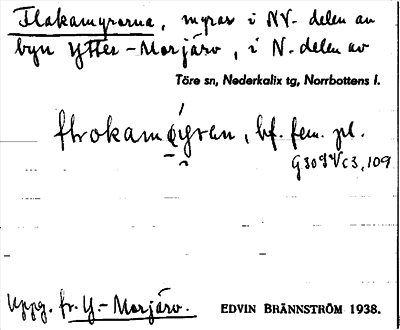 Flakamyrarna, myrar i NV-delen av
byn Ytter-Morjärv, i N-delen av
Töre sn, Nederkalix tg, Norrbottens l.
bf. fem. pl.
Uppg. fr. Y.-Morjärv. EDVIN BRÄNNSTRÖM 1938.